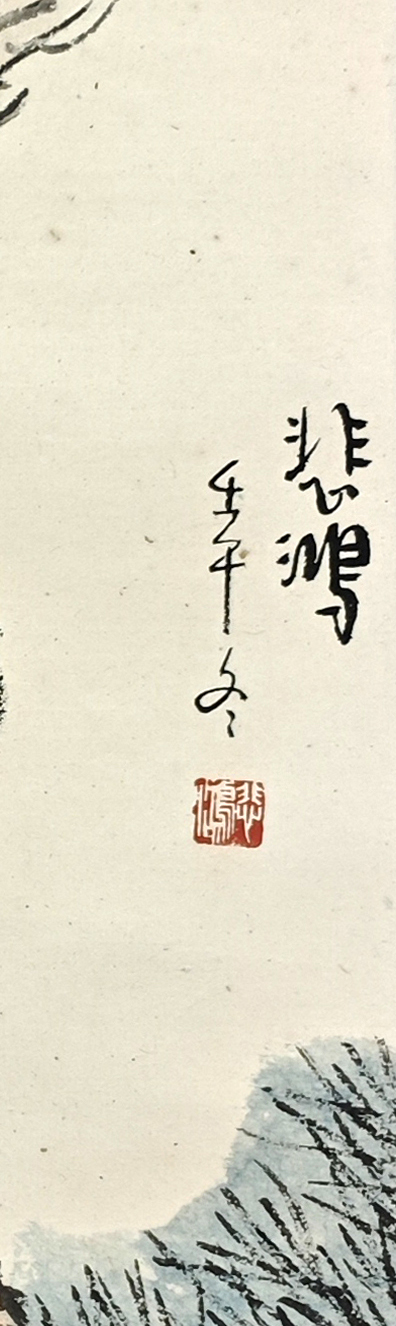 悲鴻
壬午冬
悲鴻